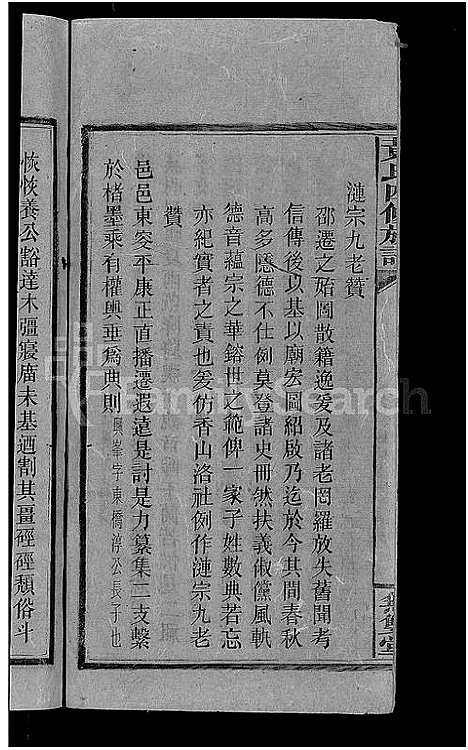 黃氏四修族譜
漣宗九老贊
邵遷之始圖散籍逸爰及諸老罔羅放失舊聞考
信傳後以基以廟宏圖紹啟乃迄於今其間春秋
高多隱德不仕例莫登諸史冊然扶義俶儻風軌
德音蘊宗之華鎔世之範俾一家子姓數典若忘
亦紀實者之責也爰仿香山洛社例作漣宗九老
贊
邑邑東変平康正直播遷遐遠是討是力纂集二支繫
於楮墨乘有權輿垂爲典則 峯字東僑淳公長子也
恢恢養公豁達木彊寢廣未基迺割其畺硜硜頹俗斗
FamilySearch